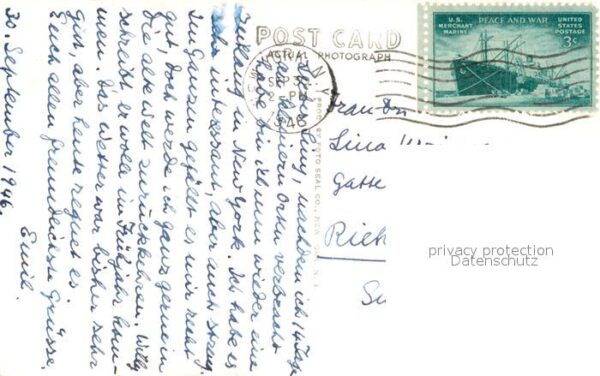 POST CARD
ACTUAL PHOTOGRAPH
U.S. MERCHANT MARINE
PEACE AND WAR
UNITED STATES POSTAGE
3¢
N.Y.
SEP 30
2 - PM
1946
nachdem ich 14 Tage
Orten verbracht
habe bin ich nun wieder eine
in New York. Ich habe es
sehr interessant, aber auch streng.
Im Ganzen gefällt es mir recht
gut, doch werde ich ganz gerne in
die alte Welt zurückkehren. Willy
schreibt er wolle im Frühjahr kom-
men. Das Wetter war bisher sehr
gut, aber heute regnet es.
Euch allen freundlichste Grüsse.
Emil.
30. September 1946.
Frau Dr.
Lina
Gatte
Rieh
privacy protection
Datenschutz